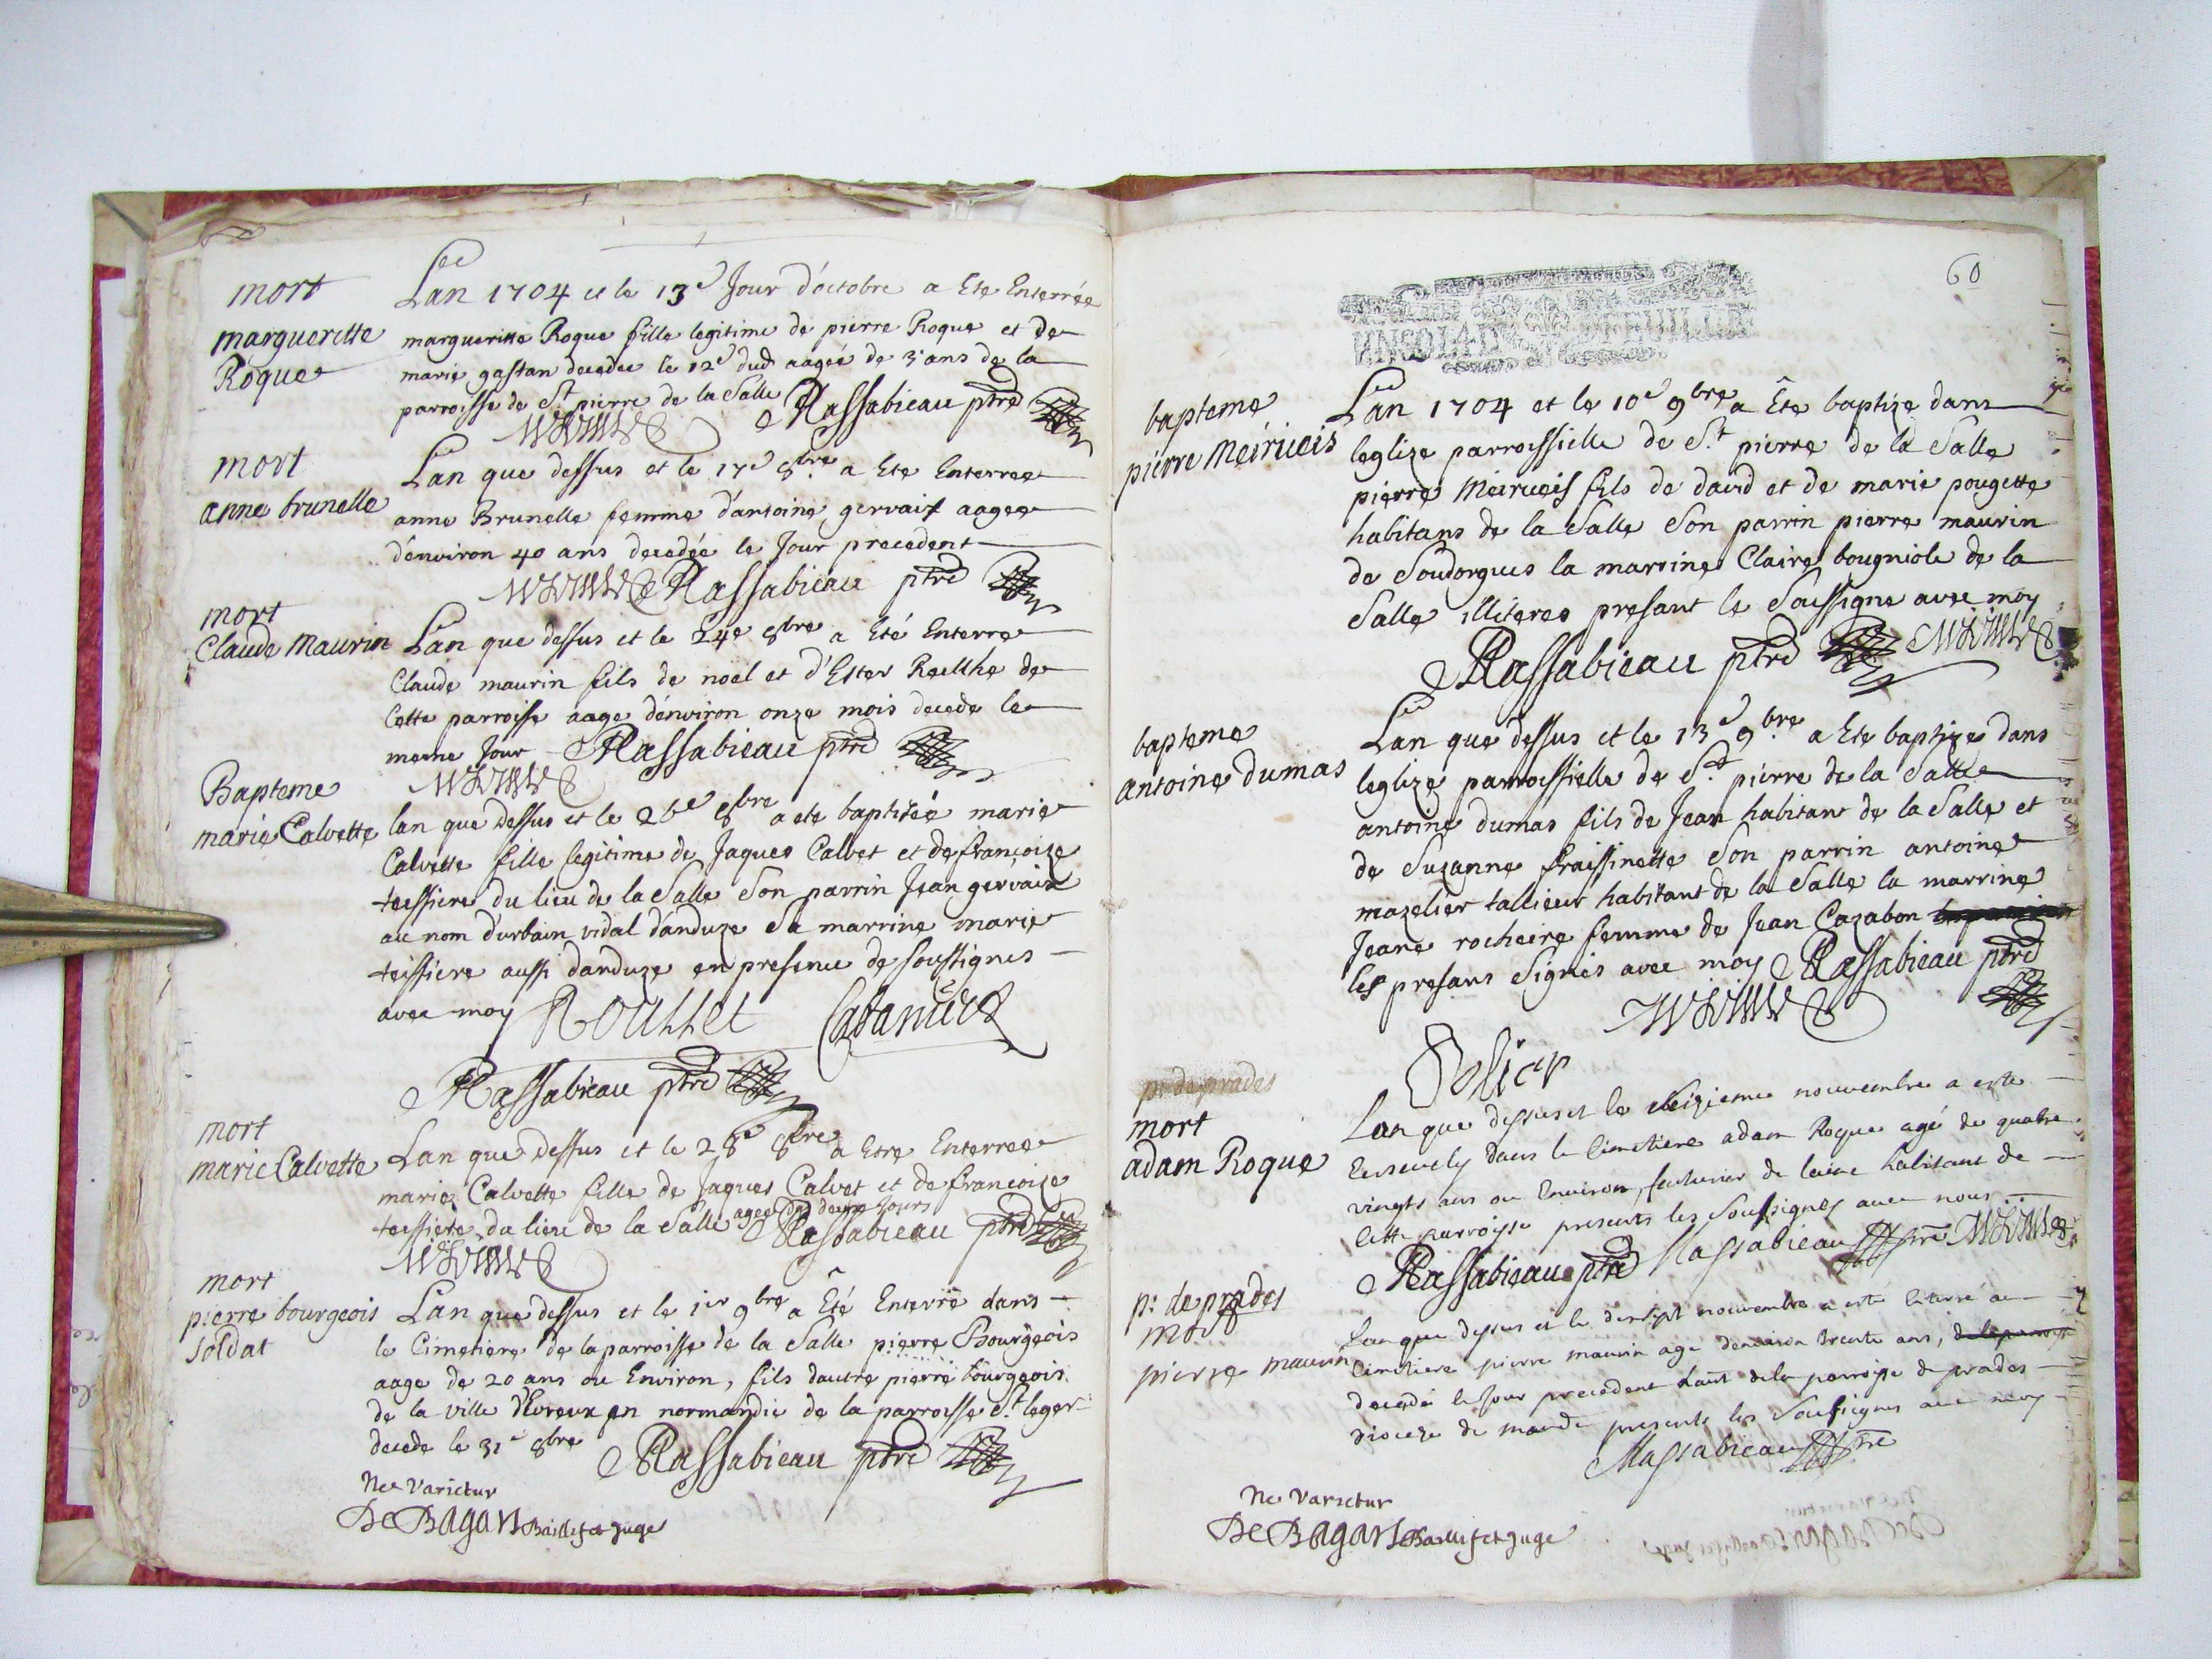 mort
marguerette
Roque
Lan 1704 et le 13e Jour d'octobre a Ete Enterrée
margueritte Roque fille legitime de pierre Roque et de
marie gastan decedee le 12e dud aagée de 3 ans de la
parroisse de St pierre de la Salle Massabieau ptre
mort
anne brunelle
Lan que dessus et le 17e 8bre a Ete Enterree
anne Brunelle femme d'antoine gervaix aagee
d'environ 40 ans decedée le Jour precedent
Massabieau ptre
mort
Claude Maurin
Lan que dessus et le 24e 8bre a Eté Enterre
Claude maurin fils de noel et d'Ester Reilhe de
Cette parroisse aage d'environ onze mois decede le
meme Jour Massabieau ptre
Bapteme
marie Calvette
lan que dessus et le 26e 8bre a ete baptisée marie
Calvette fille legitime de Jaques Calvet et de françoize
teissiere du lieu de la Salle Son parrin Jean gervaix
au nom d'urbain vidal d'anduze Sa marrine marie
teissiere aussi danduze en presence de soussignes
avec moy Roussel Cabanis
Massabieau ptre
mort
marie Calvette
Lan que dessus et le 28e 8bre a Etre Enterree
marie Calvette fille de Jaques Calvet et de francoize
teissiere du lieu de la Salle agee de deux Jours Massabieau ptre
mort
pierre bourgeois
soldat
Lan que dessus et le 1er 9bre a Êté Enterré dans
le Cimetiere de la parroisse de la Salle pierre Bourgeois
aage de 20 ans ou Environ, fils dautre pierre bourgeois
de la ville d'Evreux en normandie de la parroisse St leger
decede le 31e 8bre Massabieau ptre
Ne Varietur
De Bagars Baillif et Juge
60
bapteme
pierre Meirueis
Lan 1704 et le 10e 9bre a Ête baptize dans
leglize parroissielle de St pierre de la Salle
pierre Meirueis fils de david et de marie pougette
habitans de la Salle Son parrin pierre maurin
de Soudorgues la marrine Claire bougniole de la
Salle illiteres presant le Soussigne avec moy
Massabieau ptre
bapteme
antoine dumas
Lan que dessus et le 13e 9bre a Ete baptize dans
leglize parroissielle de St pierre de la Salle
antoine dumas fils de Jean habitant de la Salle et
de Suzanne fraissinette Son parrin antoine
mazelier tallieur habitant de la Salle la marrine
Jeane rocheire femme de Jean Cazabon
les presans Signés avec moy Massabieau ptre
Solier
pr de prades
mort
adam Roque
Lan que dessus et le seizieme nouvembre a este
Ensevely dans le Cimetiere adam Roque agé de quatre
vingts ans ou Environ, facturier de laine habitant de
Cette parroisse presents les Soussignes avec nous
Massabieau ptre Massabieau ptre
pr de prades
mort
pierre maurin
Lan que dessus et le dixsept nouvembre a este Enterré au
Cimetiere pierre maurin age denviron trente ans, de la parroisse
decedé le Jour precedent Estant de la parroisse de prades
Dioceze de mande presents les Soussignes avec moy
Massabieau ptre
Ne Varietur
De Bagars Baillif et Juge